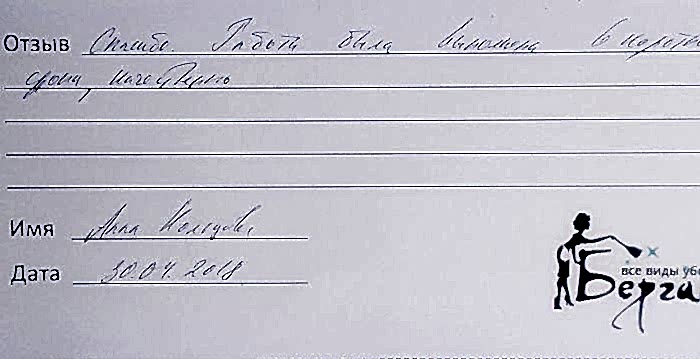 Отзыв Спасибо. Работа была выполнена в коротк
сроки, качественно
Имя Анна
Дата 30.04.2018
все виды убо
Берга